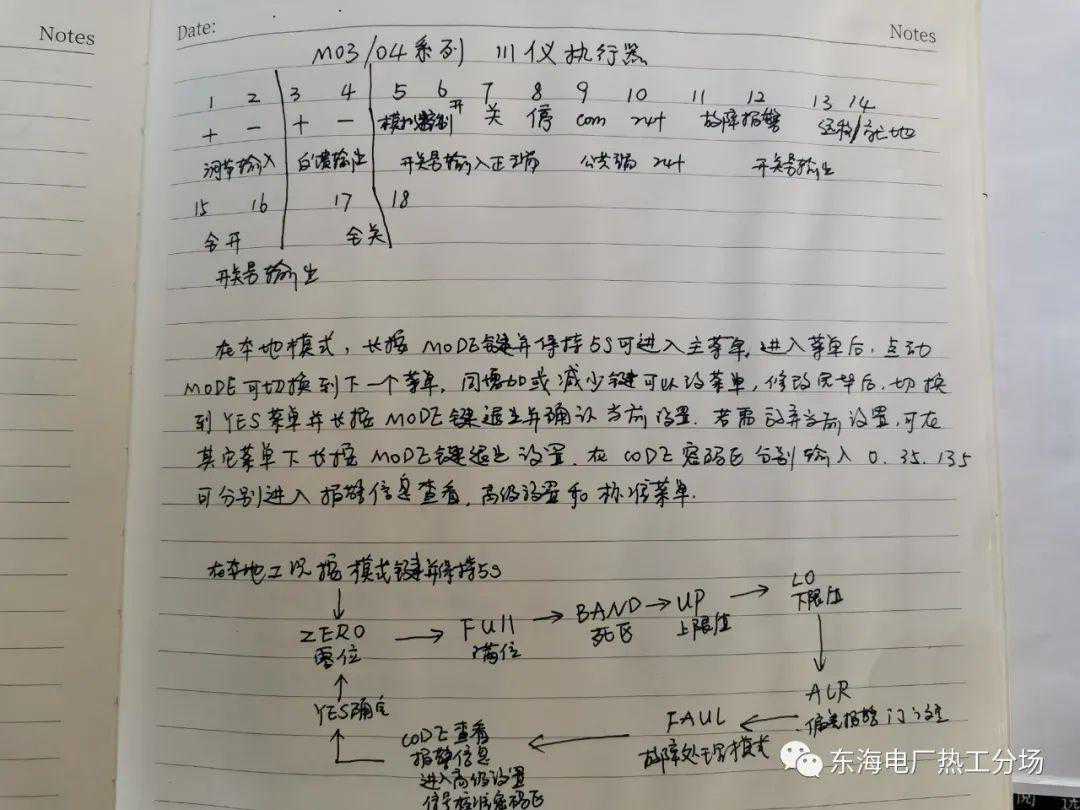 Notes
Date:
Notes
M03/04系列 川仪执行器
1 2 3 4 5 6 7 8 9 10 11 12 13 14
+ - + - 模拟控制 开 关 停 com 24+ 故障报警 远程/就地
调节输入 反馈输出 开关号输入正端 公共端 24+ 开关号输出
15 16 17 18
全开 全关
开关号输出
在本地模式,长按MODE键并保持5S可进入主菜单,进入菜单后,点动
MODE可切换到下一个菜单,同增加或减少键可以改菜单,修改完毕后,切换
到YES菜单并长按MODE键退出并确认当前设置.若需放弃当前设置,可在
其它菜单下长按MODE键退出设置.在CODE密码区分别输入0.35.135
可分别进入报警信息查看,高级设置和标准菜单.
在本地工况按模式键并保持5S
ZERO → FUll → BAND → UP → LO
零位 满位 死区 上限值 下限值
ALR
偏差报警门
FAUL
故障处理模式
CODE查看
报警信息
进入高级设置
信号标准密码区
YES确定
东海电厂热工分场